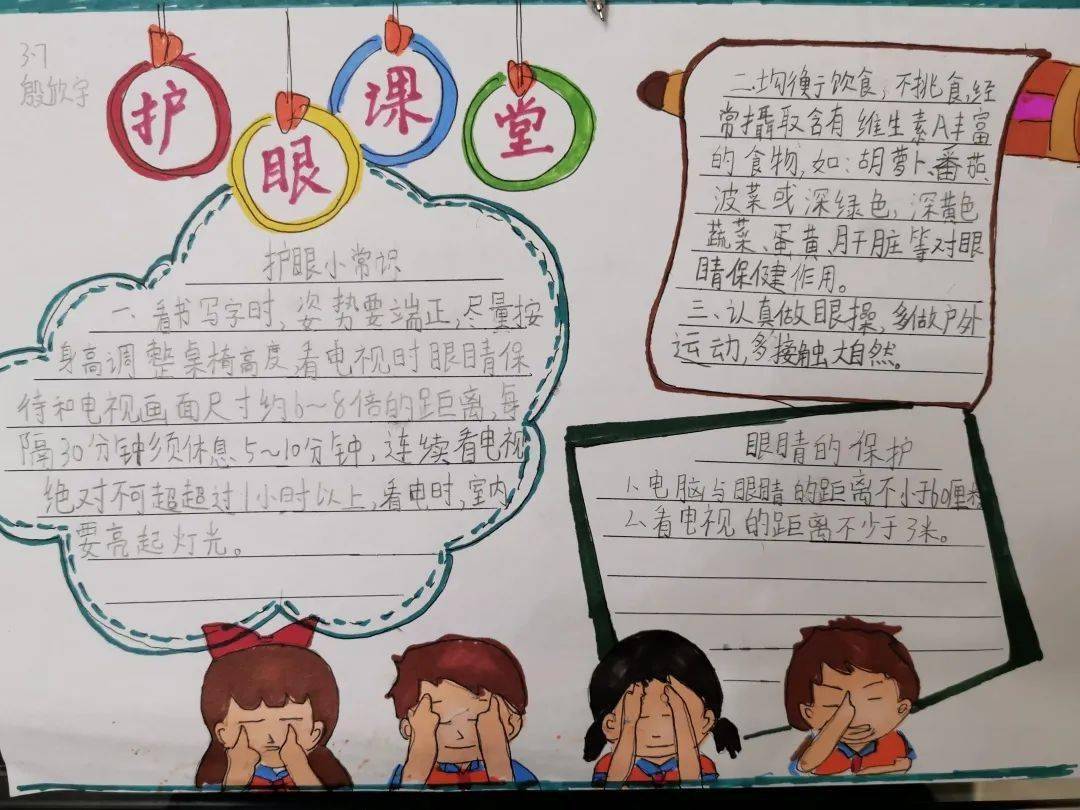 3.7
殷欣宇
护眼课堂
护眼小常识
一、看书写字时,姿势要端正,尽量按
身高调整桌椅高度看电视时眼睛保
待和电视画面尺寸约6~8倍的距离,每
隔30分钟须休息5~10分钟,连续看电视
绝对不可超超过1小时以上,看电时,室内
要亮起灯光。
二.均衡于饮食,不挑食,经
常摄取含有维生素A丰富
的食物,如:胡萝卜、番茄、
波菜或深绿色,深黄色
蔬菜、蛋黄、肝脏等对眼
睛保健作用。
三、认真做眼操,多做户外
运动,多接触大自然。
眼睛的保护
1.电脑与眼睛的距离不小于60厘米
2.看电视的距离不少于3米。